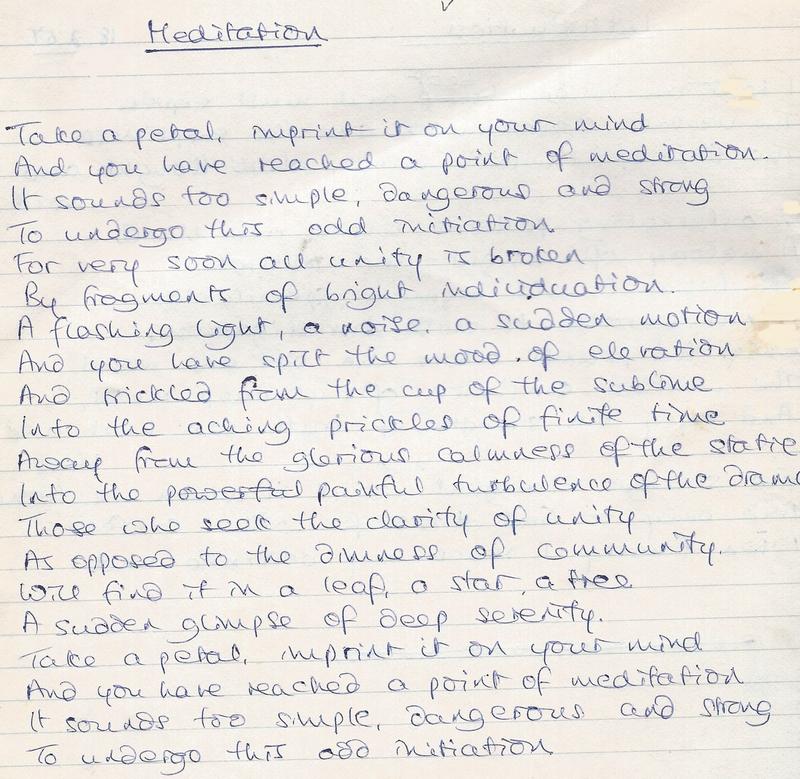 Meditation
Take a petal, imprint it on your mind
And you have reached a point of meditation.
It sounds too simple, dangerous and strong
To undergo this odd initiation
For very soon all unity is broken
By fragments of bright individuation.
A flashing light, a noise, a sudden motion
And you have spilt the mood of elevation
And trickled from the cup of the sublime
Into the aching prickles of finite time
Away from the glorious calmness of the static
Into the powerful painful turbulence of the drama
Those who seek the clarity of unity
As opposed to the dimness of community.
Will find it in a leaf, a star, a tree
A sudden glimpse of deep serenity.
Take a petal, imprint it on your mind
And you have reached a point of meditation
It sounds too simple, dangerous and strong
To undergo this odd initiation